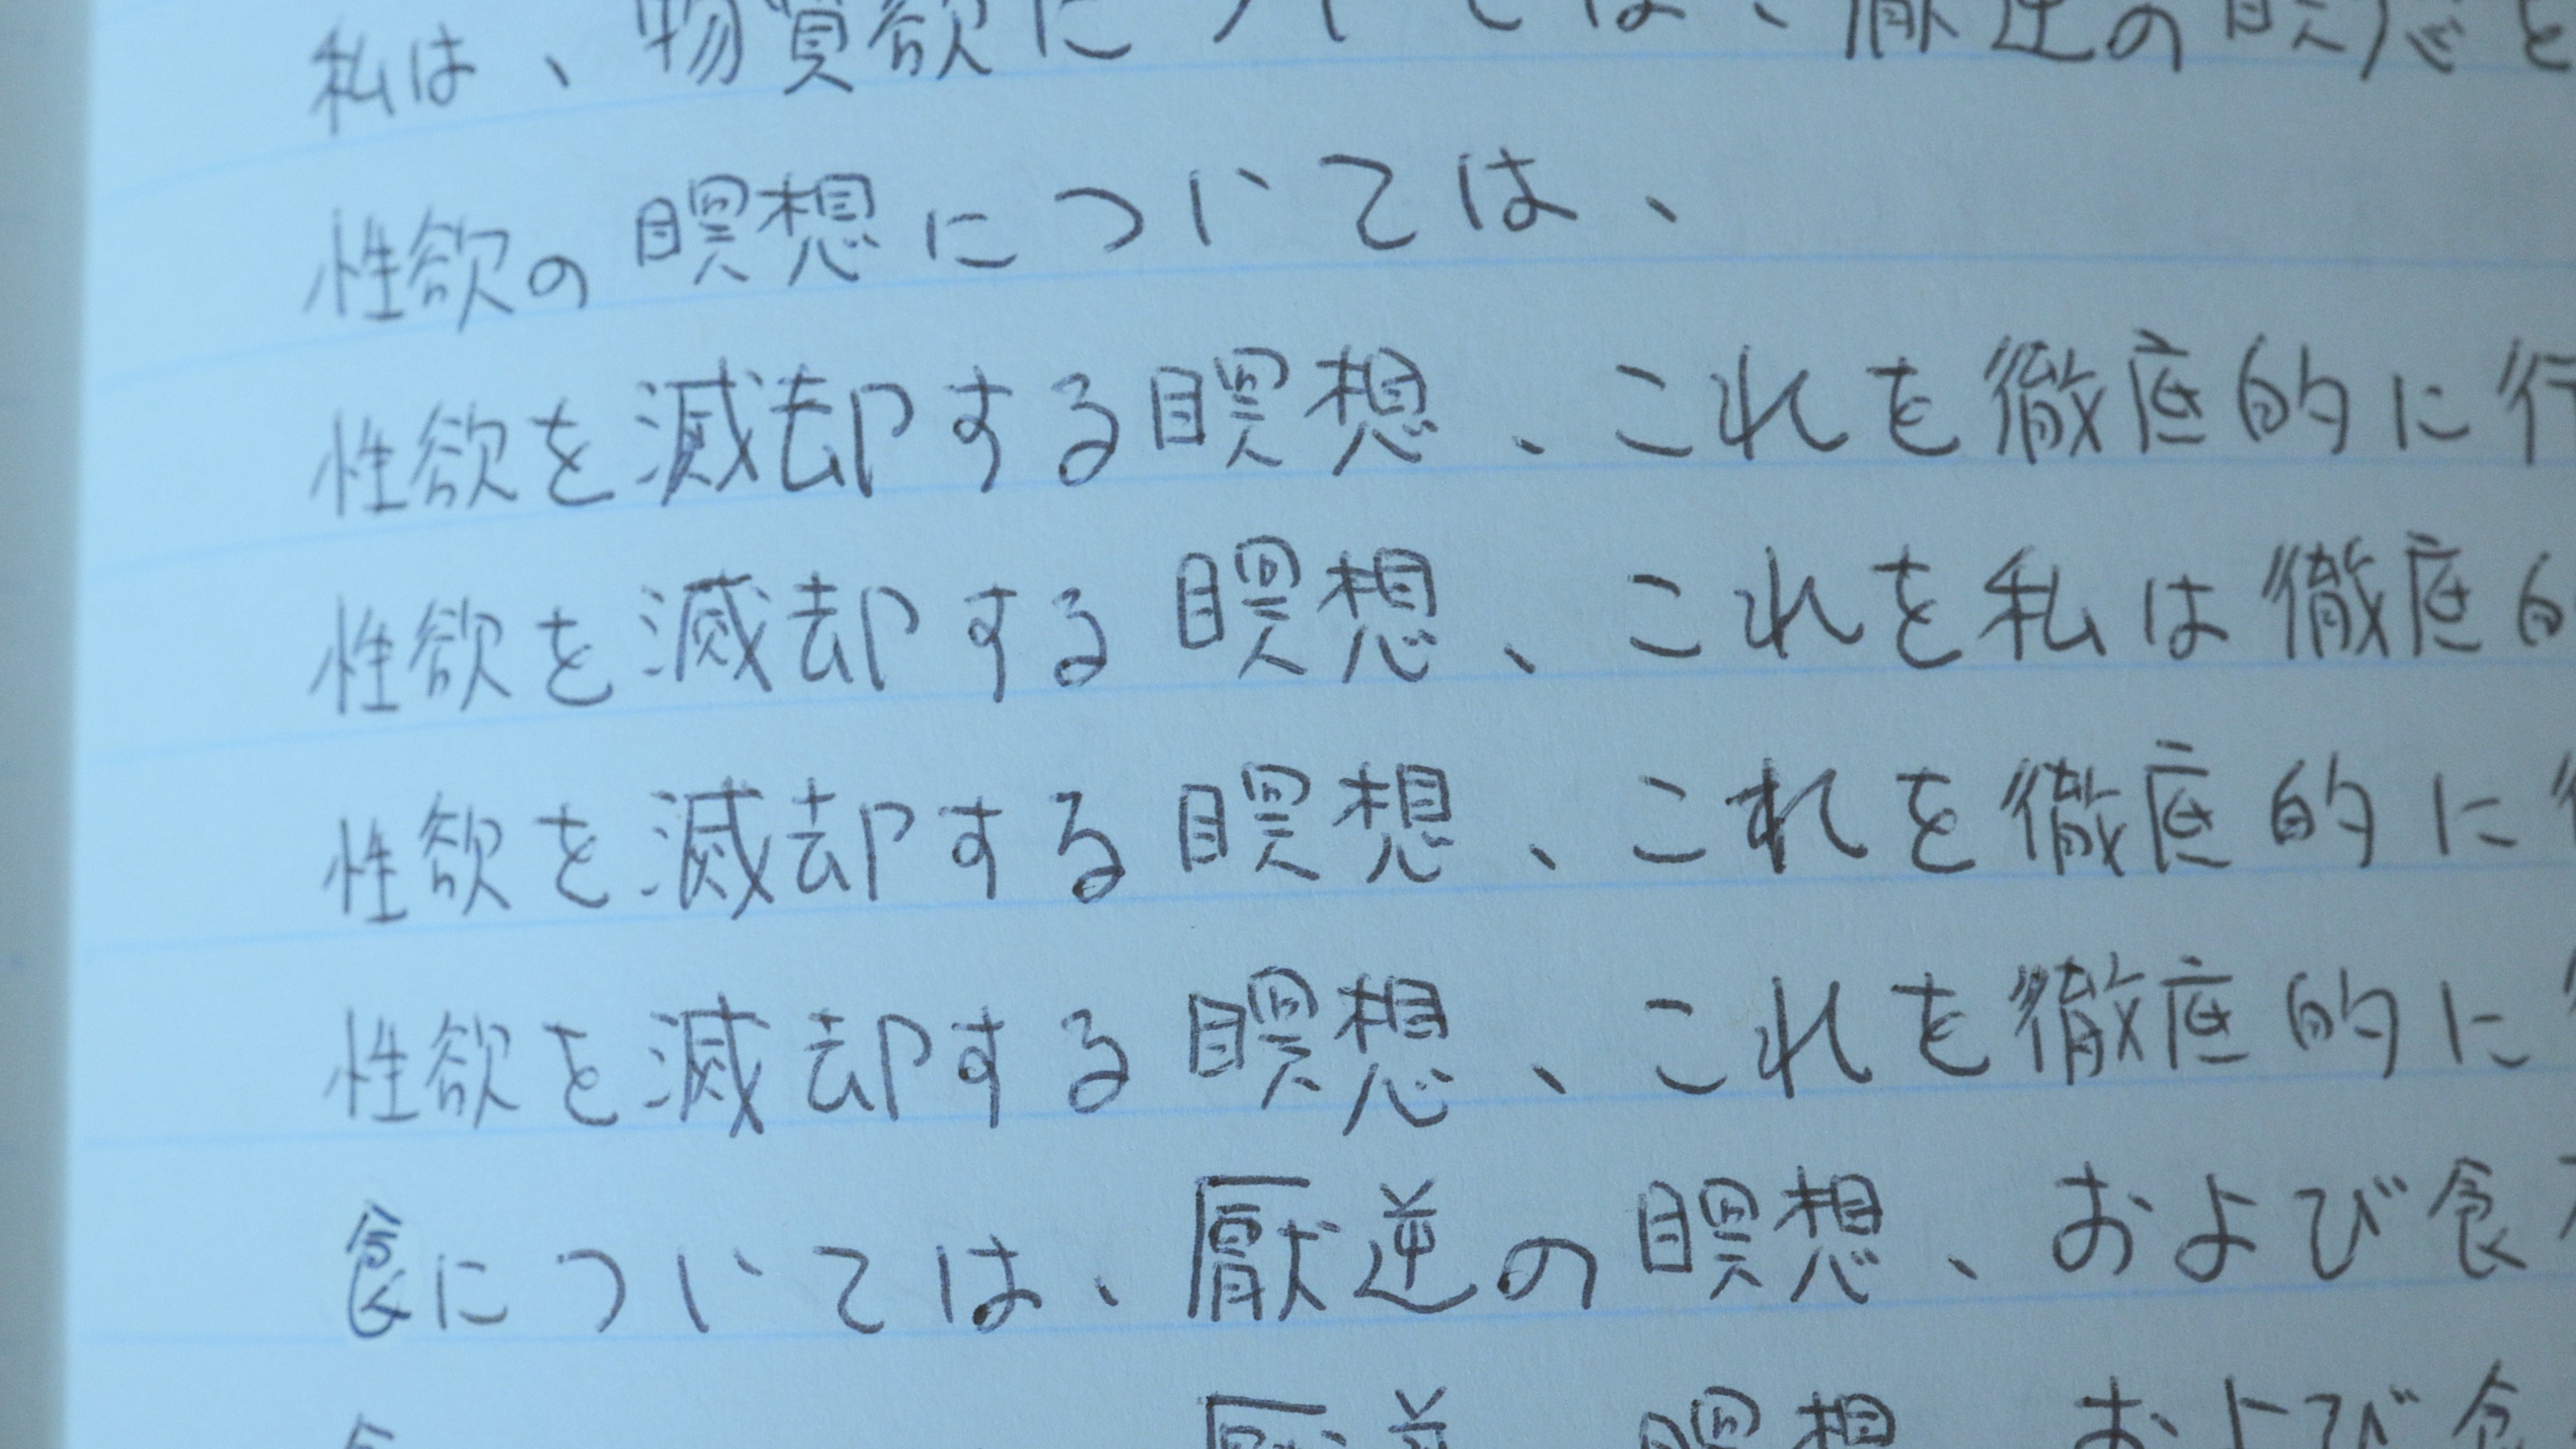 私は、物質欲については、厭逆の瞑想を
性欲の瞑想については、
性欲を滅却する瞑想、これを徹底的に行
性欲を滅却する瞑想、これを私は徹底的
性欲を滅却する瞑想、これを徹底的に
性欲を滅却する瞑想、これを徹底的に
食については、厭逆の瞑想、および食
瞑想、および食